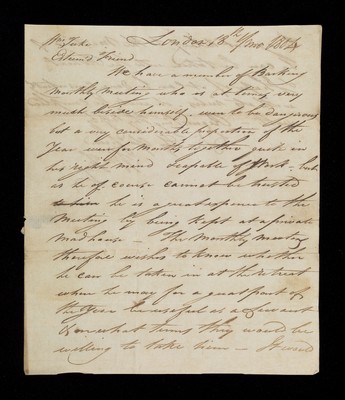 Wm Tuke London 18th 1/mo 1814
Esteem'd Friend
We have a member of Barking
Monthly Meeting who is at times very
much besides himself even to be dangerous
but a very considerable proportion of the
Year even for Months together quiet in
his right mind & capable of Work - but
as he of course cannot be trusted
he is a great expence to the
Meeting by being kept at a private
madhouse — The Monthly meeting
therefore wishes to know whether
he can be taken in at the Retreat
when he may for a great part of
the Year be useful as a Servant
& on what terms they would be
willing to take him —